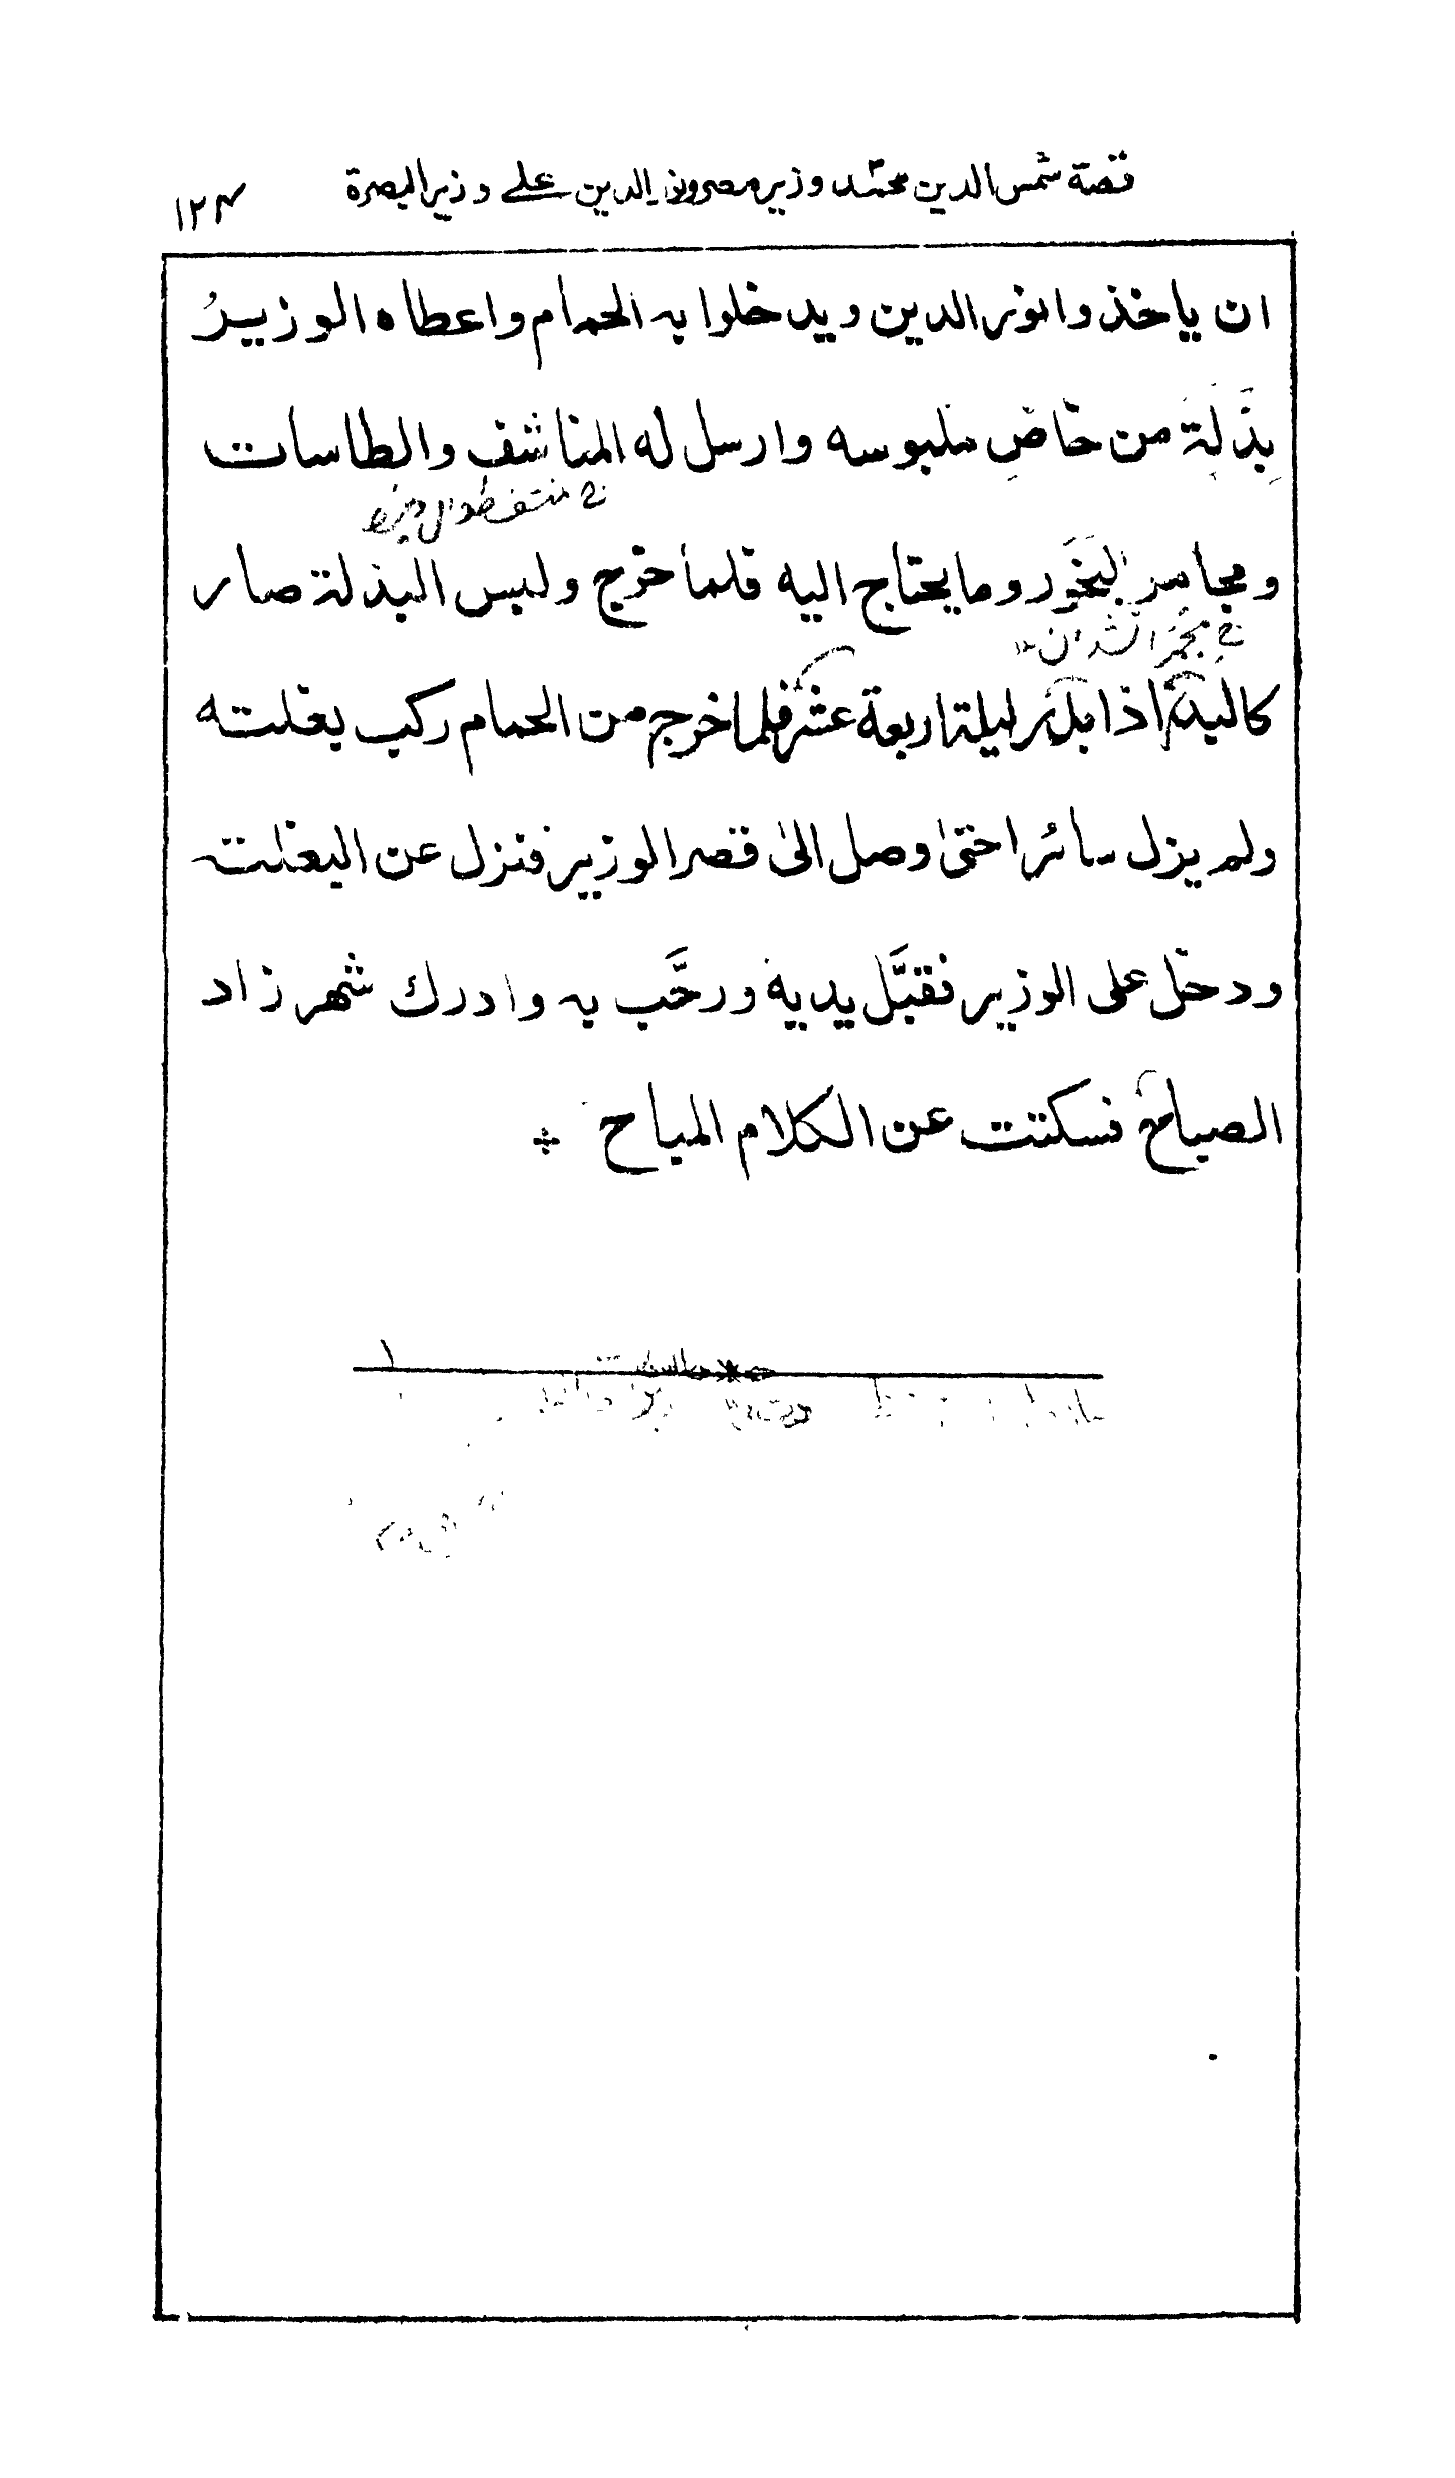 قصة شمس الدين محمّد وزير مصر ونور الدين على وزير البصرة
١٢٣
ان ياخذ وانور الدين ويدخلوا به الحمام واعطاه الوزيرُ
بِذَلِة من خاصِ ملبوسه وارسل له المناشف والطاسات
ومجامِر البَخَور وما يحتاج اليه فلما خرج ولبس البذلة صار
كالبدر اذا بدر ليلة اربعة عشر فلما خرج من الحمام ركب بغلته
ولم يزل سائرا حتىٰ وصل الىٰ قصر الوزير فنزل عن البغلة
ودخل على الوزير فقبَّل يديه ورحَّب به وادرك شهرزاد
الصباح فسكتت عن الكلام المباح